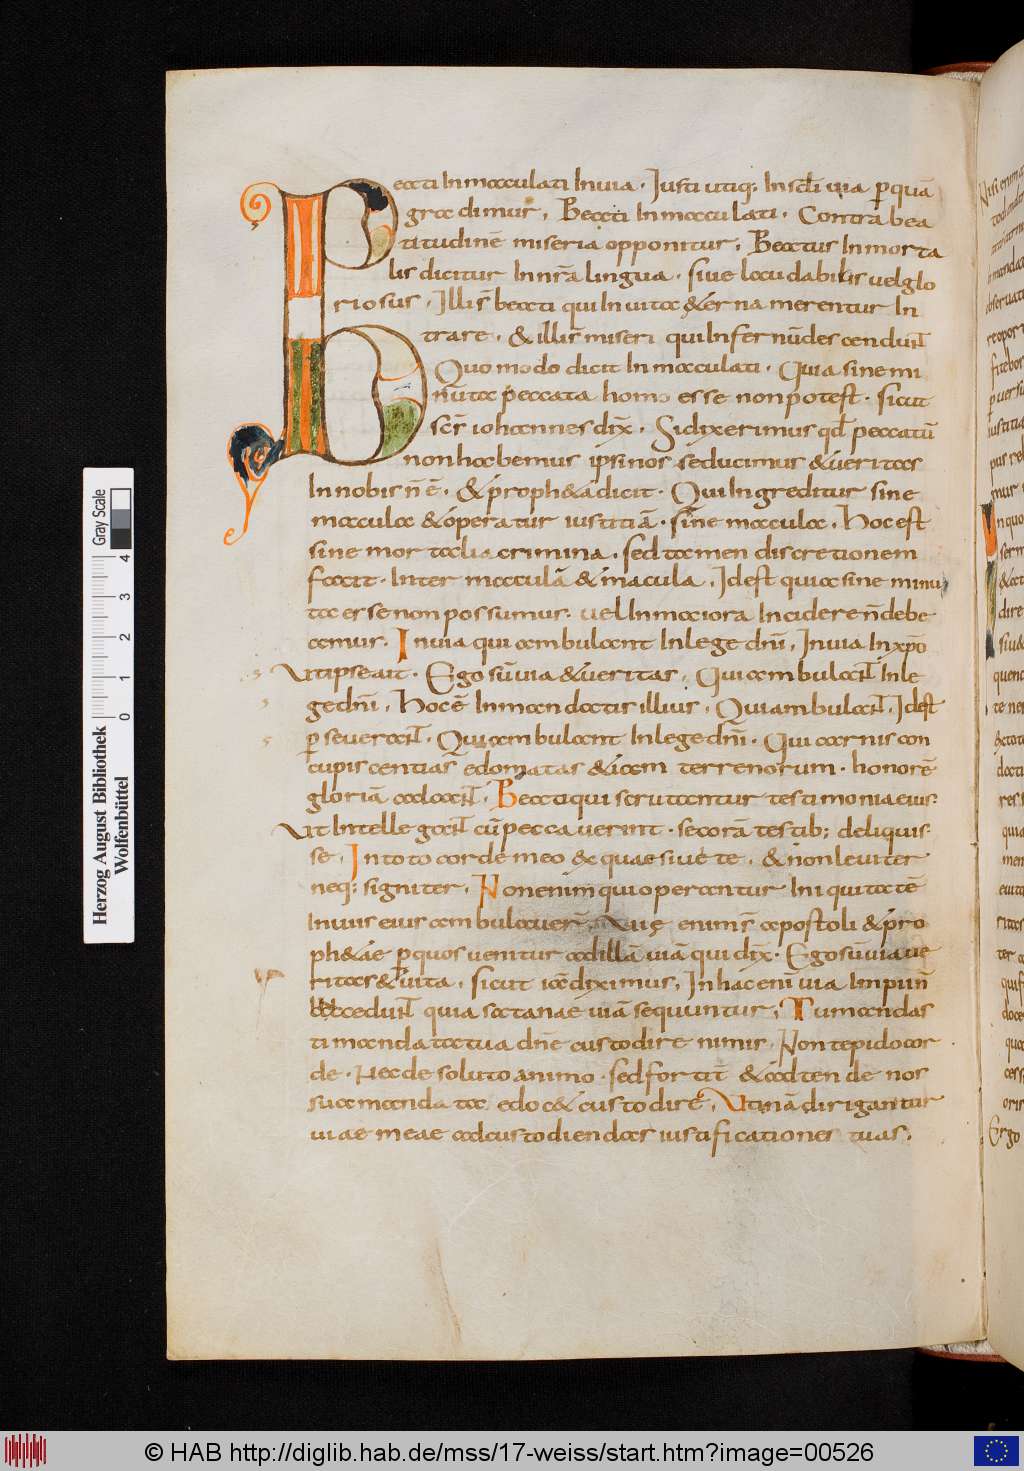 Beati Inmaculati Inuia · Justi utiq; In sc̄di uia p̱quā
gradimur, Beati Inmaculati · Contra bea
titudinē miseria opponitur; Beatus Inmorta
lis dicitur In nr̄a lingua · siue laudabilis uel glo
riosus, Illis̄ beati qui In uita &ér na merentur In
trare, & illis̄ miseri qui Infernū descendunt
Quomodo dicit Inmaculati · Quia sine mi
nuta peccata homo esse non potest · sicut
sc̄s iohannes dix̄ · Si dixerimus qđ peccatū
non habemus ipsi nos seducimus & ueritas
In nobis n̄ ē · & proph&a dicit · Qui Ingreditur sine
macula & operatur iustitiā · sine macula, Hoc est
sine mortalia crimina, sed tamen discretionem
facit · Inter maculā & macula, Idest quia sine minu
ta esse non possumus · uel In maiora Incidere n̄ debe
amus · In uia qui ambulant In lege dn̄i, In uia In xp̄o
Ut ipse ait · Ego sū uia & ueritas, Qui ambulant In le
ge dn̄i, Hoc ē In mandatis illius, Qui ambulant, Idest
p̱seuerant · Qui ambulant In lege dn̄i · Qui carnis con
cupiscentias edomatas & iam terrenorum · honorē
gloriā calcant, Beati qui scrutantur testimonia eius·
Ut Intellegant cū peccauerint · se corā testib; deliquis·
se, In toto corde meo exquaesiui te, & non leuiter
neq; signiter, Non enim qui operantur Iniquitatē
In uiis eius ambulauer̄, Uię enim s̄ apostoli & pro
ph&ae p̱quos uenitur ad illā uiā qui dix̄ · Ego sū uia ue
ritas & uita, sicut iā diximus, In hac enī uia Impun̄
accedunt quia satanae uiā sequuntur; Tu mandas
ti mandata tua dn̄e custodire nimis, Non tepido cor
de · Nec de soluto animo · sed fortit̄ & adtende nos
sua mandata edoc& custodire, Utinā dirigantur
uiae meae ad custodiendas iustificationes tuas,
Herzog August Bibliothek
Wolfenbüttel
Gray Scale
0 1 2 3 4
© HAB http://diglib.hab.de/mss/17-weiss/start.htm?image=00526